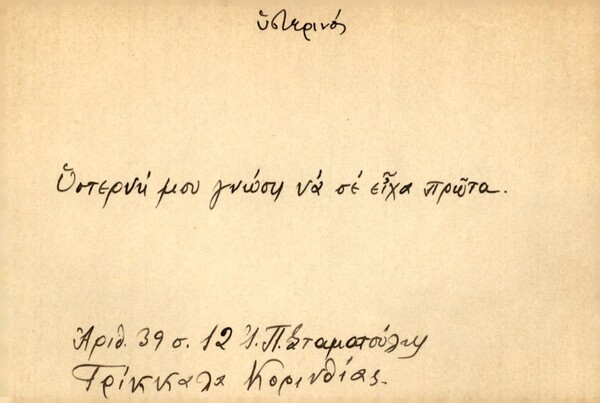 ὑστερινός
Ὑστερνή μου γνώση νά σέ εἶχα πρῶτα.
Ἀριθ. 39 σ. 12 Ἰ. Π. Σταματούλη
Τρίκκαλα Κορινθίας.